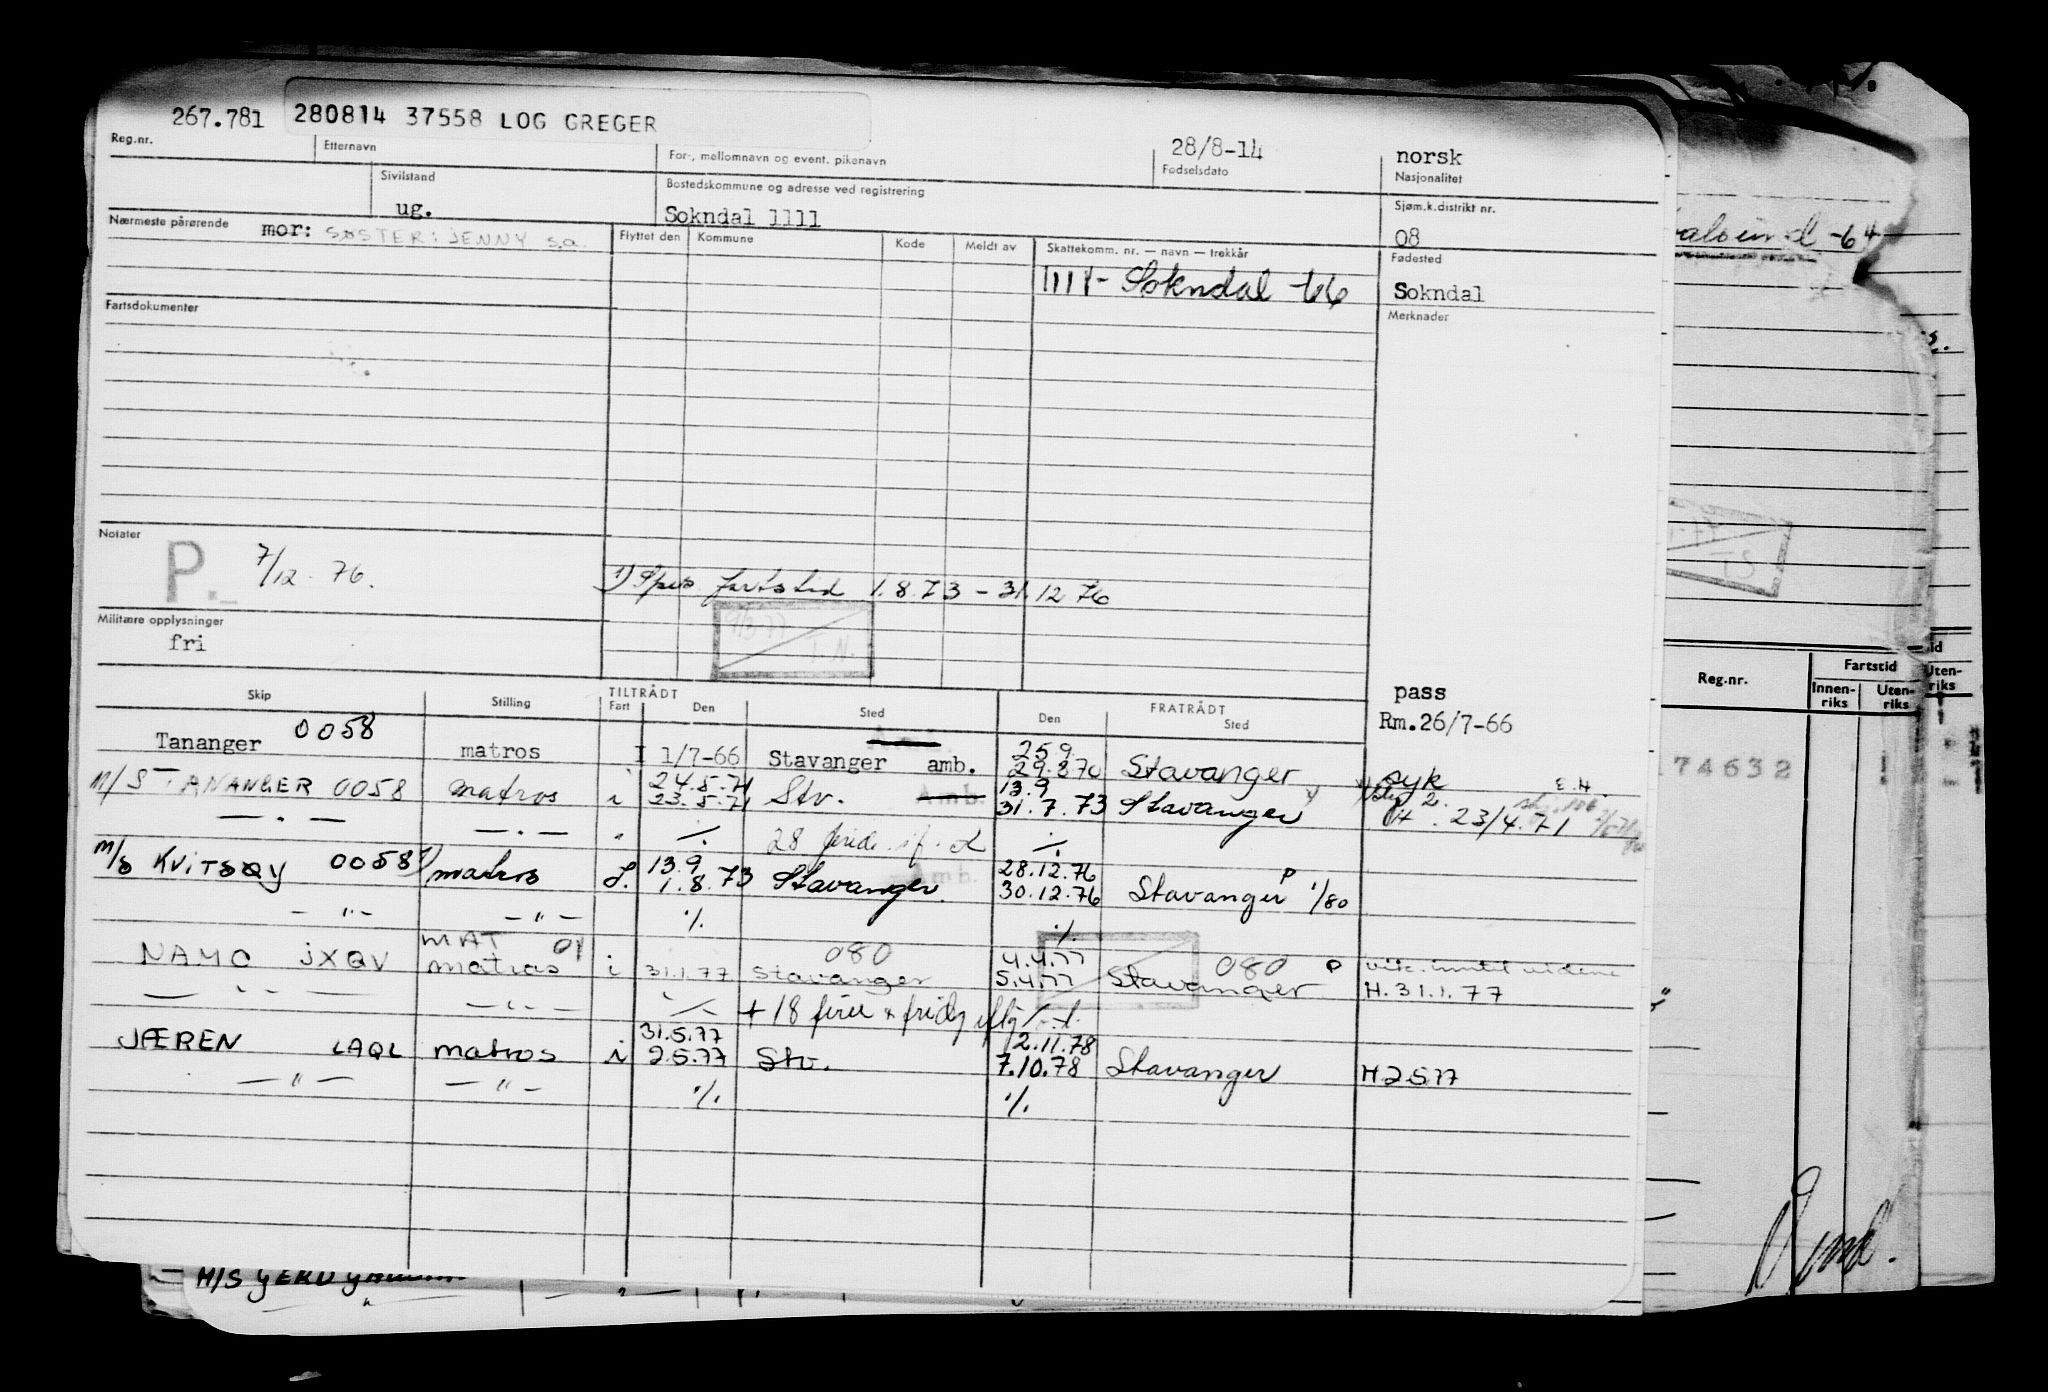 267.781 280814 37558 LOG GREGER 28/8-14 norsk
Reg.nr. Etternavn For-, mellomnavn og event. pikenavn Fødselsdato Nasjonalitet
Sivilstand Bostedskommune og adresse ved registrering Sjøm.k.distrikt nr.
ug. Sokndal 1111 08
Nærmeste pårørende mor: SØSTER: JENNY s.a. Flyttet den Kommune Kode Meldt av Skattekomm. nr. — navn — trekkår Fødested
1111- Sokndal -66 Sokndal
Fartsdokumenter Merknader
Notater
P. 7/12. 76.
1) Spes fartstid 1.8.73 - 31.12 76
Militære opplysninger
fri
9/3 77
T.N.
pass
Rm.26/7-66
Skip Stilling TILTRÅDT Fart Den Sted FRATRÅDT Den Sted
Tananger 0058 matros I 1/7-66 Stavanger amb. 25.9. 29.8 70 Stavanger syk
M/S TANANGER 0058 matros i 24.5.71 23.5.71 Stv. Amb. 13.9 31.7.73 Stavanger H. 23/4.71 E.H.
— " — — " — " ./. 28 ./.
M/S KVITSØY 0058 1) matros I. 13.9 1.8.73 Stavanger amb. 28.12.76 30.12.76 Stavanger P 1/80
— " — — " — ./. ./.
NAMO JXQV MAT 01 matros i 31.1.77 080 Stavanger 4.4.77 5.4.77 080 Stavanger P H.31.1.77
— " — — " — ./. + 18 ferie + ./.
JÆREN LAQL matros i 31.5.77 2.5.77 Stv. 2.11.78 7.10.78 Stavanger H.2577
— " — — " — ./. ./.
-64
Reg.nr. Fartstid
Innen-riks Uten-riks
Uten-riks
74632
M/S